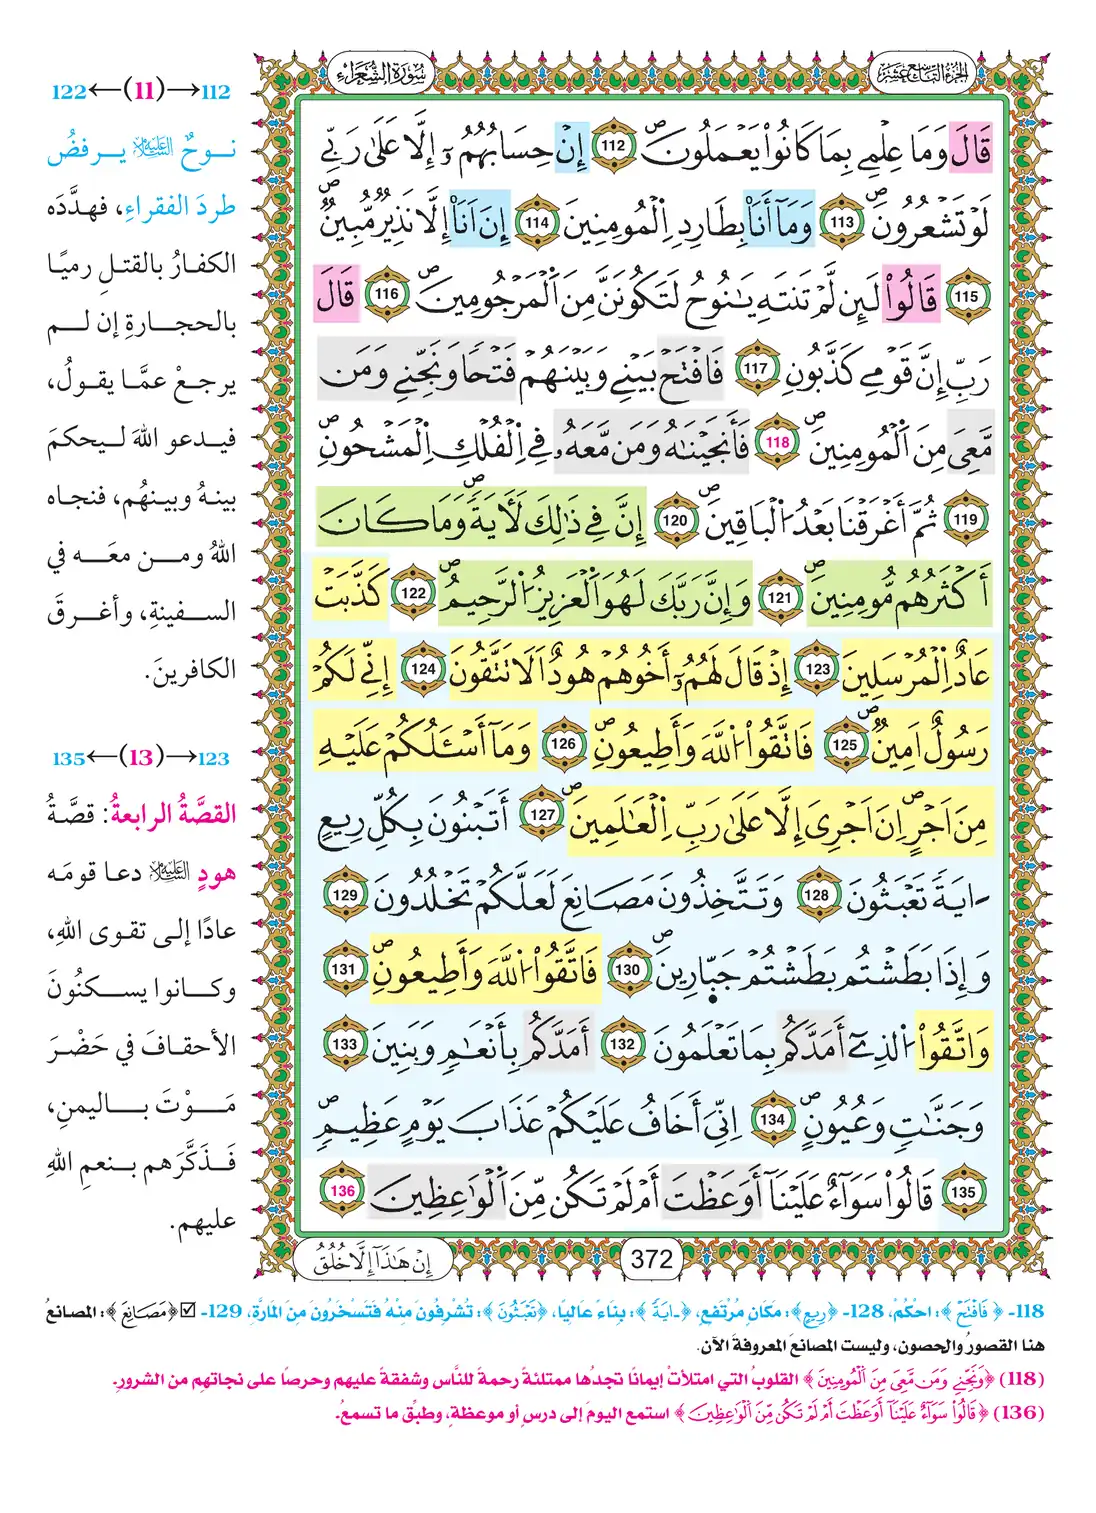 الجزء التاسع عشر
سورة الشعراء
قَالَ وَمَا عِلْمِے بِمَا كَانُواْ يَعْمَلُونَۖ 112 إِنْ حِسَابُهُمُۥٓ إِلَّا عَلَىٰ رَبِّے
لَوْ تَشْعُرُونَۖ 113 وَمَآ أَنَا۠ بِطَارِدِ اِ۬لْمُومِنِينَ 114 إِنَ اَنَا۠ إِلَّا نَذِيرٞ مُّبِينٞۖ
115 قَالُواْ لَئِن لَّمْ تَنتَهِ يَٰنُوحُ لَتَكُونَنَّ مِنَ اَ۬لْمَرْجُومِينَۖ 116 قَالَ
رَبِّ إِنَّ قَوْمِے كَذَّبُونِ 117 فَافْتَحْ بَيْنِے وَبَيْنَهُمْ فَتْحاٗ وَنَجِّنِے وَمَن
مَّعِيَ مِنَ اَ۬لْمُومِنِينَۖ 118 فَأَنجَيْنَٰهُ وَمَن مَّعَهُۥ فِے اِ۬لْفُلْكِ اِ۬لْمَشْحُونِۖ
119 ثُمَّ أَغْرَقْنَا بَعْدُ اُ۬لْبَاقِينَۖ 120 إِنَّ فِے ذَٰلِكَ لَأٓيَةٗۖ وَمَا كَانَ
أَكْثَرُهُم مُّومِنِينَۖ 121 وَإِنَّ رَبَّكَ لَهُوَ اَ۬لْعَزِيزُ اُ۬لرَّحِيمُۖ 122 كَذَّبَتْ
عَادٌ اِ۬لْمُرْسَلِينَ 123 إِذْ قَالَ لَهُمُۥٓ أَخُوهُمْ هُودٌ اَلَا تَتَّقُونَ 124 إِنِّے لَكُمْ
رَسُولٌ اَمِينٞۖ 125 فَاتَّقُواْ اُ۬للَّهَ وَأَطِيعُونِۖ 126 وَمَآ أَسْـَٔلُكُمْ عَلَيْهِ
مِنَ اَجْرٍۖ اِنَ اَجْرِيَ إِلَّا عَلَىٰ رَبِّ اِ۬لْعَٰلَمِينَۖ 127 أَتَبْنُونَ بِكُلِّ رِيعٍ
ـايَةٗ تَعْبَثُونَ 128 وَتَتَّخِذُونَ مَصَانِعَ لَعَلَّكُمْ تَخْلُدُونَ 129
وَإِذَا بَطَشْتُم بَطَشْتُمْ جَبّ۪ارِينَۖ 130 فَاتَّقُواْ اُ۬للَّهَ وَأَطِيعُونِۖ 131
وَاتَّقُواْ اُ۬لذِےٓ أَمَدَّكُم بِمَا تَعْلَمُونَ 132 أَمَدَّكُم بِأَنْعَٰمٖ وَبَنِينَ 133
وَجَنَّٰتٖ وَعُيُونٍۖ 134 اِنِّيَ أَخَافُ عَلَيْكُمْ عَذَابَ يَوْمٍ عَظِيمٖۖ
135 قَالُواْ سَوَآءٌ عَلَيْنَآ أَوَعَظْتَ أَمْ لَمْ تَكُن مِّنَ اَ۬لْوَٰعِظِينَ 136
372
إِنْ هَٰذَآ إِلَّا خُلُقُ
112→(11)←122
نوحٌ عليه السلام يرفضُ
طردَ الفقراءِ، فهدَّدَه
الكفارُ بالقتلِ رميًا
بالحجارةِ إن لم
يرجعْ عمَّا يقولُ،
فيدعو اللهَ ليحكمَ
بينهُ وبينهُم، فنجاه
اللهُ ومن معَه في
السفينةِ، وأغرقَ
الكافرينَ.
123→(13)←135
القصَّةُ الرابعةُ: قصَّةُ
هودٍ عليه السلام دعا قومَه
عادًا إلى تقوى اللهِ،
وكانوا يسكنُونَ
الأحقافَ في حَضْرَ
مَوْتَ باليمنِ،
فَذَكَّرَهم بنعمِ اللهِ
عليهم.
118- ﴿فَافْتَحْ﴾: احْكُمْ، 128- ﴿رِيعٍ﴾: مَكَانٍ مُرْتَفِعٍ، ﴿ـايَةٗ﴾: بِنَاءً عَالِيًا، ﴿تَعْبَثُونَ﴾: تُشْرِفُونَ مِنْهُ فَتَسْخَرُونَ مِنَ المَارَّةِ، 129- ☑ ﴿مَصَانِعَ﴾: المصانعُ
هنا القصورُ والحصون، وليست المصانعَ المعروفةَ الآن.
(118) ﴿وَنَجِّنِے وَمَن مَّعِيَ مِنَ اَ۬لْمُومِنِينَ﴾ القلوبُ التي امتلأتْ إيمانًا تجدُها ممتلئةً رحمةً للنَّاس وشفقةً عليهم وحرصًا على نجاتِهم من الشرورِ.
(136) ﴿قَالُواْ سَوَآءٌ عَلَيْنَآ أَوَعَظْتَ أَمْ لَمْ تَكُن مِّنَ اَ۬لْوَٰعِظِينَ﴾ استمع اليومَ إلى درسٍ أو موعظةٍ، وطبِّق ما تسمعُ.